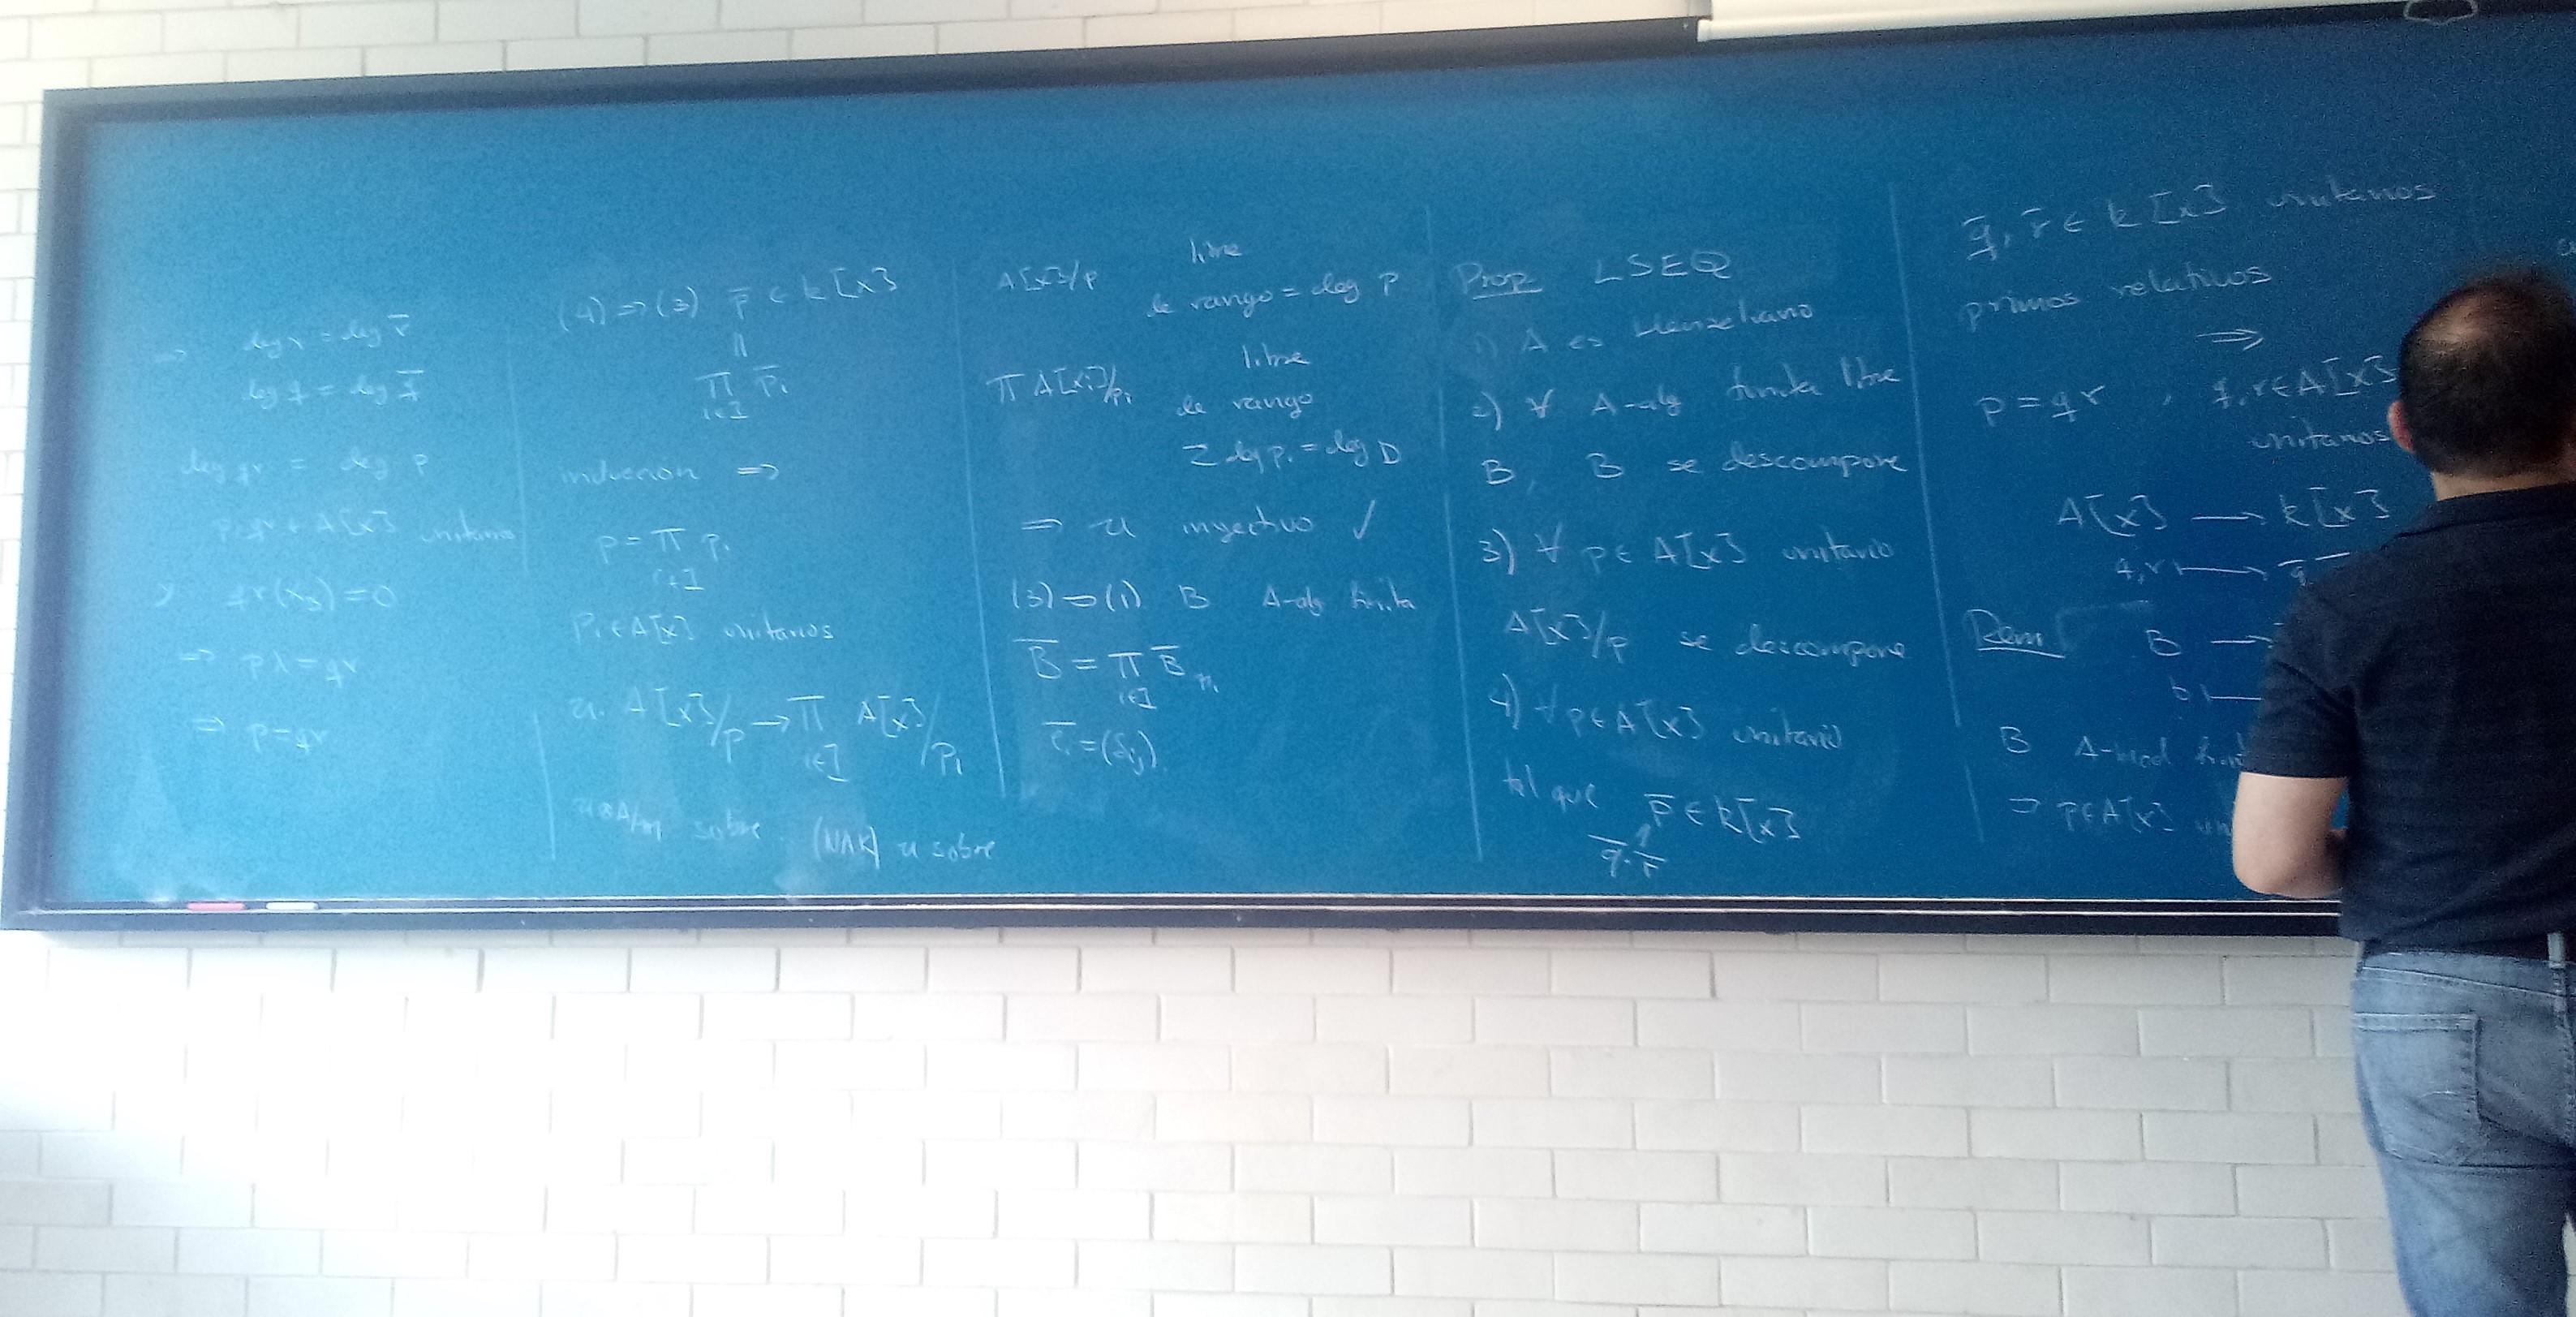 ⇒ deg r = deg r̄
deg q = deg q̄
deg qr = deg p
p, qr ∈ A[x] unitario
y qr(x_b) = 0
⇒ pλ = qr
⇒ p = qr
(4) ⇒ (3) p̄ ∈ k[x]
||
∏ p̄ᵢ
i∈I
inducción ⇒
p = ∏ pᵢ
i∈I
pᵢ ∈ A[x] unitarios
u: A[x]/p → ∏ A[x]/pᵢ
i∈I
u⊗A/m sobre (NAK) u sobre
A[x]/p libre
de rango = deg p
∏ A[x]/pᵢ libre
de rango
Σ deg pᵢ = deg p
⇒ u inyectivo ✓
(3) ⇒ (1) B A-alg finita
B̄ = ∏ B̄
i∈I
ēᵢ = (δᵢⱼ)
Prop LSEQ
1) A es Henseliano
2) ∀ A-alg finita libre
B, B se descompone
3) ∀ p ∈ A[x] unitario
A[x]/p se descompone
4) ∀ p ∈ A[x] unitario
tal que p̄ ∈ k[x]
q̄·r̄
q̄, r̄ ∈ k[x] unitarios
primos relativos
⇒
p = qr , q, r ∈ A[x]
unitarios
A[x] → k[x]
q, r ↦ q̄
Dem B →
b ↦
B A-mod
⇒ p ∈ A[x]